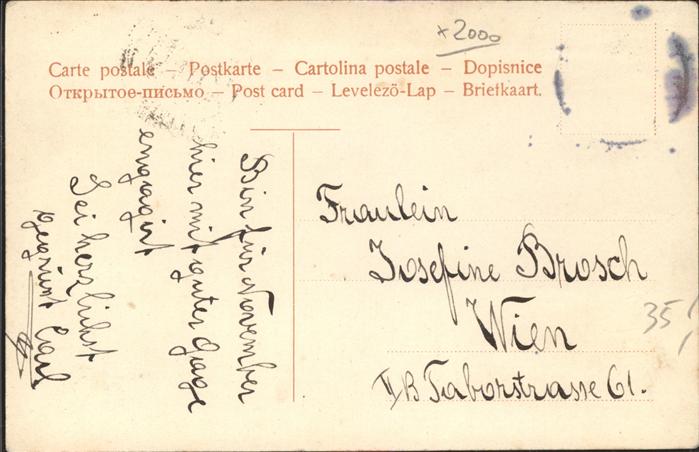 ×2000
Carte postale – Postkarte – Cartolina postale – Dopisnice
Открытое-письмо – Post card – Levelező-Lap – Briefkaart.
Bin für November
hier mit guter Gage
engagirt
Sei herzlichst
gegrüsst Carl
Fraulein
Josefine Brosch
Wien
II/B Taborstrasse 61.
35,